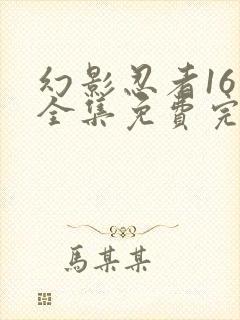 幻影忍者16
全集免費完
馬某某